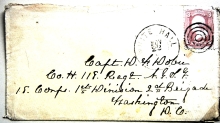 HALL
Capt. D. A. Dobie
Co. H 118. Regt. N.Y.S.V.
18. Corps. 1st Division 2d Brigade
Washington
D.C.